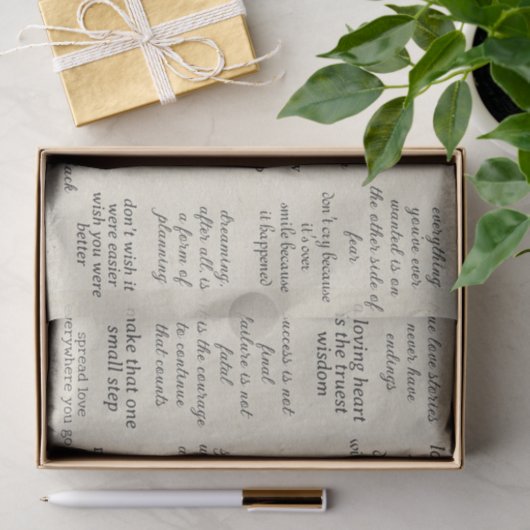 everything
you've ever
wanted is on
the other side of
fear
don't cry because
it's over
smile because
it happened
dreaming,
after all, is
a form of
planning
don't wish it
were easier
wish you were
better
love stories
never have
endings
loving heart
is the truest
wisdom
success is not
final
failure is not
fatal
is the courage
to continue
that counts
make that one
small step
spread love
everywhere you go